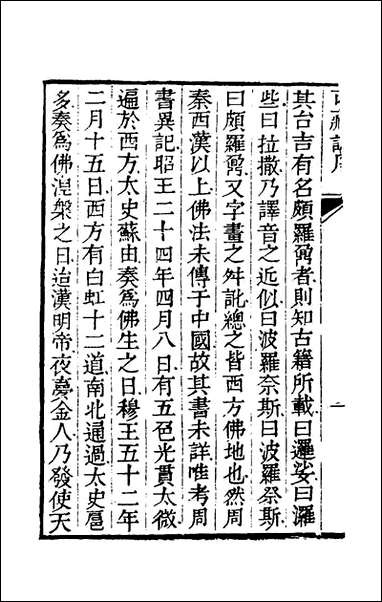 其台吉有名頗羅鼐者則知古籍所載曰邏娑曰邏
些曰拉撒乃譯音之近似曰波羅奈斯曰波羅祭斯
曰頗羅鼐又字畫之舛訛總之皆西方佛地也然周
秦西漢以上佛法未傳于中國故其書未詳唯考周
書異記昭王二十四年四月八日有五色光貫太微
遍於西方太史蘇由奏爲佛生之日穆王五十二年
二月十五日西方有白虹十二道南北通過太史扈
多奏爲佛涅槃之日迨漢明帝夜夢金人乃發使天